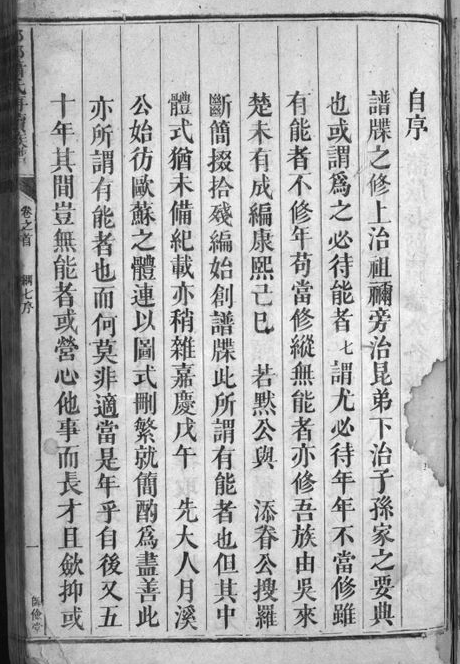 自序
譜牒之修上治祖禰旁治昆弟下治子孫家之要典
也或謂爲之必待能者七謂尤必待年年不當修雖
有能者不修年苟當修縱無能者亦修吾族由吳來
楚未有成編康熙己巳 若默公與 添眷公搜羅
斷簡掇拾殘編始創譜牒此所謂有能者也但其中
體式猶未備紀載亦稍雜嘉慶戊午 先大人月溪
公始彷歐蘇之體連以圖式刪繁就簡酌爲盡善此
亦所謂有能者也而何莫非適當是年乎自後又五
十年其間豈無能者或營心他事而長才且歛抑或
卷之首
七序
一